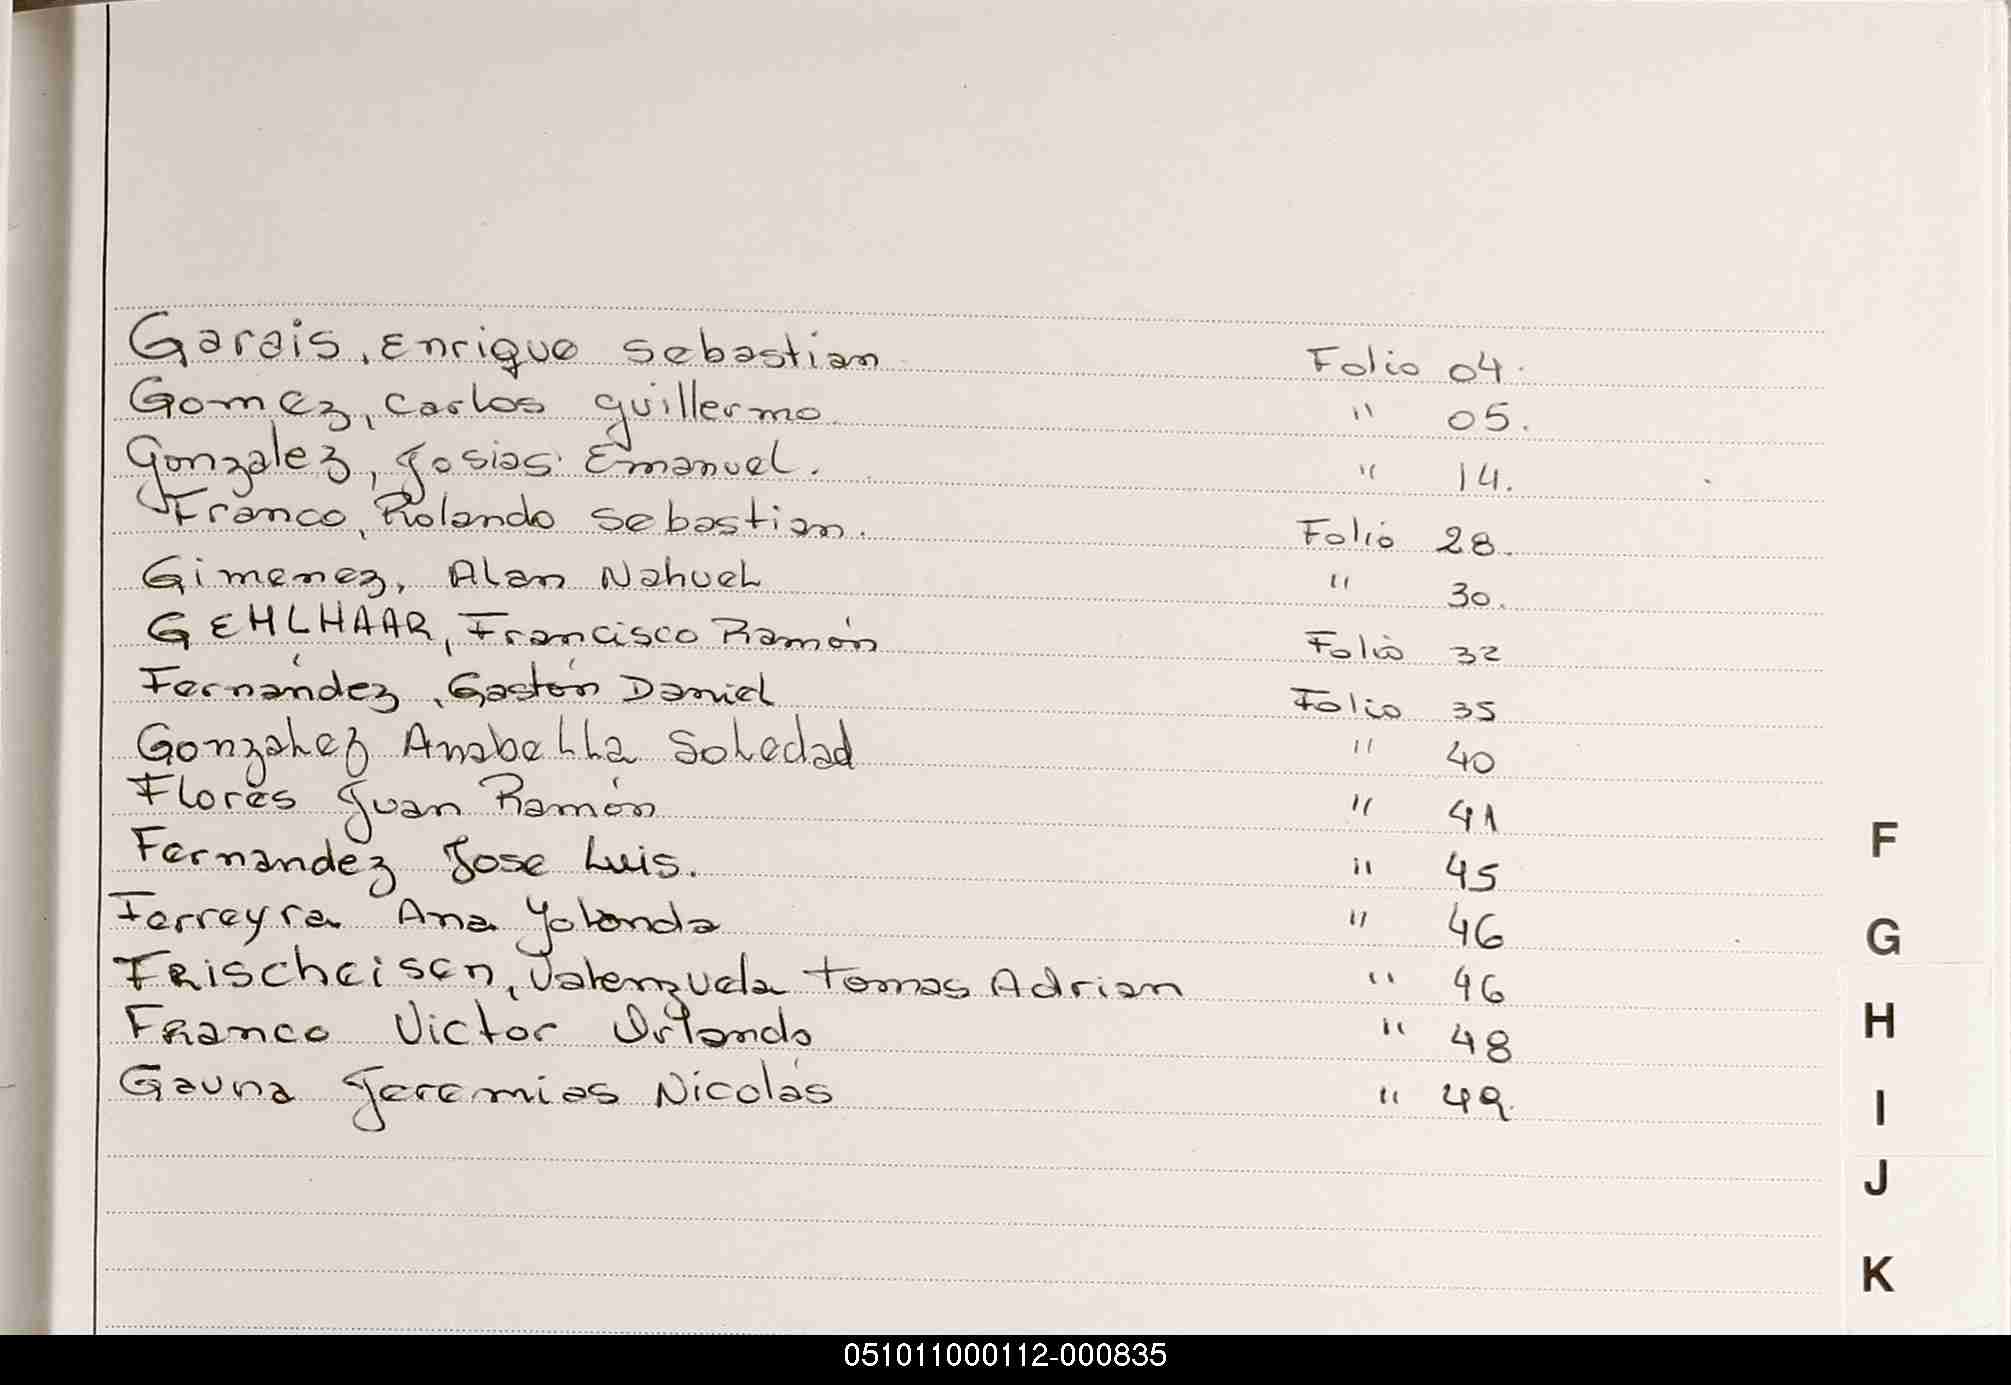 Garais, Enrique Sebastian Folio 04.
Gomez, Carlos guillermo. " 05.
Gonzalez, Josias Emanuel. " 14.
Franco, Rolando Sebastian. Folio 28.
Gimenez, Alan Nahuel " 30.
GEHLHAAR, Francisco Ramón Folio 32
Fernández, Gastón Daniel Folio 35
Gonzalez Anabella Soledad " 40
Flores Juan Ramón " 41
Fernandez Jose Luis. " 45
Ferreyra Ana Yolanda " 46
Frischeisen, Valenzuela Tomas Adrian " 46
Franco Victor Orlando " 48
Gauna Jeremias Nicolás " 49.
F
G
H
I
J
K
051011000112-000835